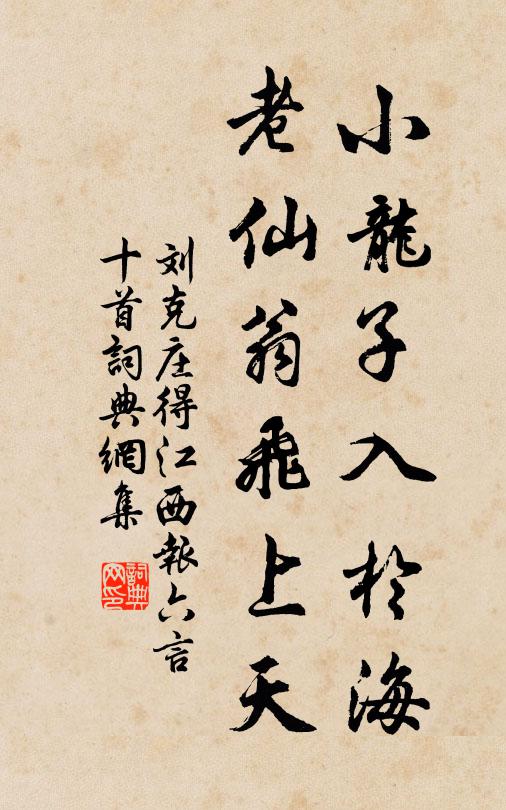 小龍子入於海
老仙翁飛上天
刘克庄得江西報六言
十首詞典網集
詞典网印